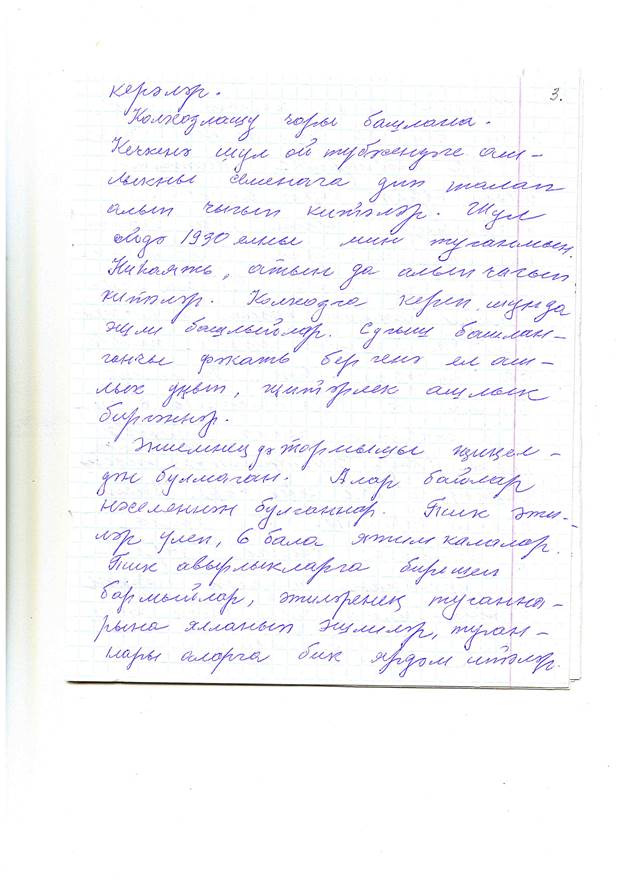 3.
керәләр.
Колхозлашу чоры башлана.
Кечкенә шул өй түбәсендәге аш-
лыкны семенага дип талап
алып чыгып китәләр. Шул
елда 1930 елны мин туганмын.
Ниһаять, атын да алып чыгып
китәләр. Колхозга кереп шунда
эшли башлыйлар. Сугыш башлан-
ганчы фәкать бер генә ел аш-
лык уңып, җитәрлек ашлык
биргәннәр.
Әниемнең дә тормышы җиңел-
дән булмаган. Алар байлар
нәселеннән булганнар. Тик әти-
ләре үлеп, 6 бала ятим калалар.
Тик авырлыкларга бирешеп
бармыйлар, әтиләренең туганна-
рына ялланып эшлиләр, туган-
нары аларга бик ярдәм итәләр.